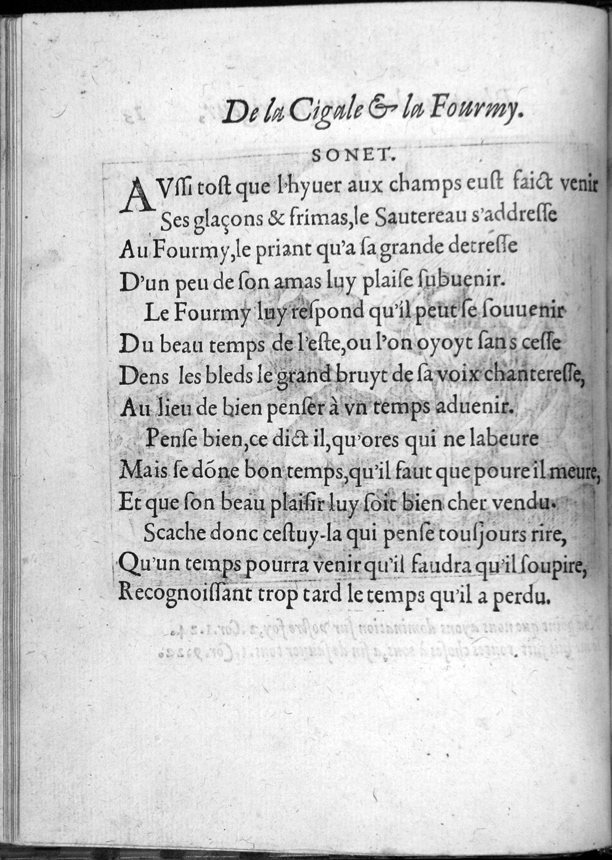 De la Cigale & la Fourmy.
SONET.
AVſſi toſt que l'hyuer aux champs euſt faict venir
Ses glaçons & frimas,le Sautereau s'addreſſe
Au Fourmy,le priant qu'a ſa grande detreſſe
D'un peu de ſon amas luy plaiſe ſubuenir.
Le Fourmy luy reſpond qu'il peut ſe ſouuenir
Du beau temps de l'eſte,ou l'on oyoyt ſans ceſſe
Dens les bleds le grand bruyt de ſa voix chantereſſe,
Au lieu de bien penſer à vn temps aduenir.
Penſe bien,ce dict il,qu'ores qui ne labeure
Mais ſe dóne bon temps,qu'il faut que poure il meure,
Et que ſon beau plaiſir luy ſoit bien cher vendu.
Scache donc ceſtuy-la qui penſe touſjours rire,
Qu'un temps pourra venir qu'il faudra qu'il ſoupire,
Recognoiſſant trop tard le temps qu'il a perdu.